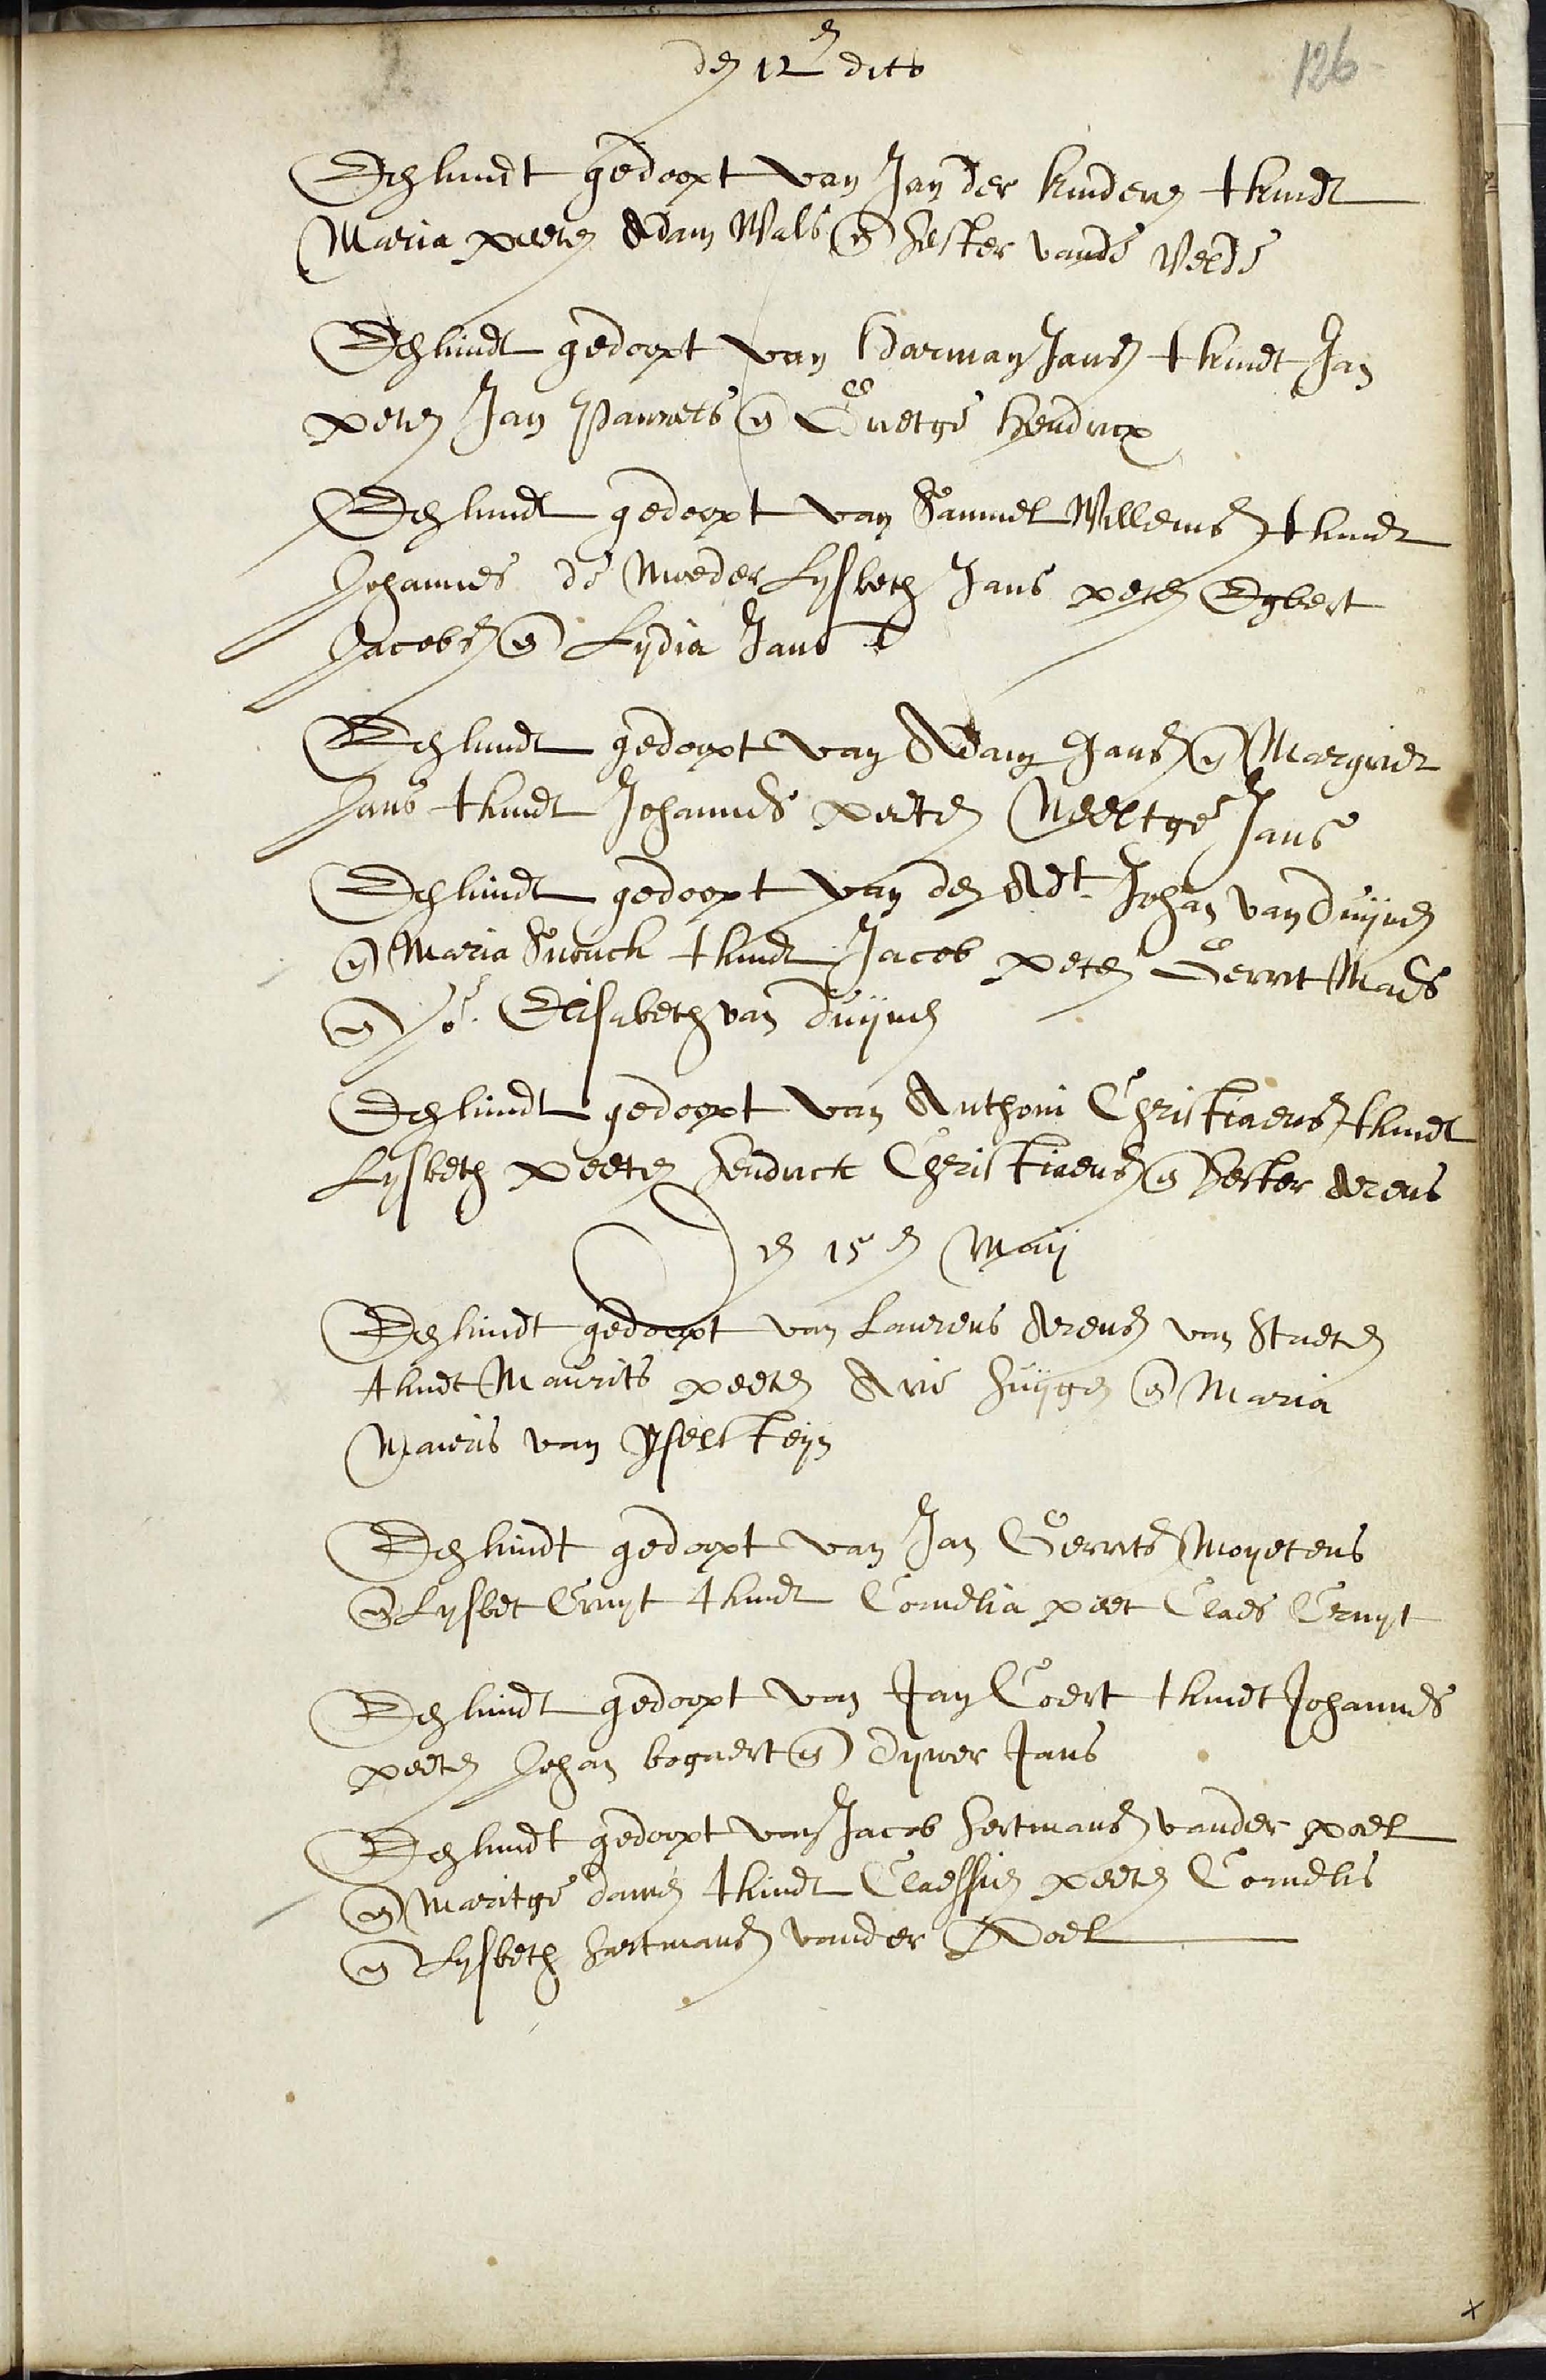 den 12en dito
126
Een kindt gedoopt van Jan der kinderen tkindt
Maria peeten Adam Wals en Hester vande Velde
Een kindt gedoopt van Harman Jans tkindt Jan
peten Jan Pauwels en Grietge Hendricx
Een kindt gedoopt van Samuel Willems tkindt
Johannes de Moeder Lysbeth Jans peten Egbert
Jacobs en Lydia Jans
Een kindt gedoopt van Adam Jans en Margriet
Jans tkindt Johannes peeten Neeltge Jans
Een kindt gedoopt van den Adt. Johan van Duijnen
en Maria Snouck tkindt Jacob peten Gerrit Maes
en Jo. Elisabeth van Duijnen
Een kindt gedoopt van Anthoni Christiaens tkindt
Lysbeth peeten Hendrick Christiaens en Hester Arens
Den 15en Maij
Een kindt gedoopt van Laurens Arens van Staeten
tkindt Maurits peeten Arie Huijgen en Maria
Mauris van Yselsteijn
Een kindt gedoopt van Jan Gerrits Moyetens
en Lysbet Cruyt tkindt Cornelia peet Claes Cruyt
Een kindt gedoopt van Jan Coert tkindt Johannes
peeten Johan bogaert en Dywer Jans
Een kindt gedoopt van Jacob Hertmans vander poel
en Maritge Damen tkindt Claessien peeten Cornelis
en Lysbeth Hartmans vander Poel
x